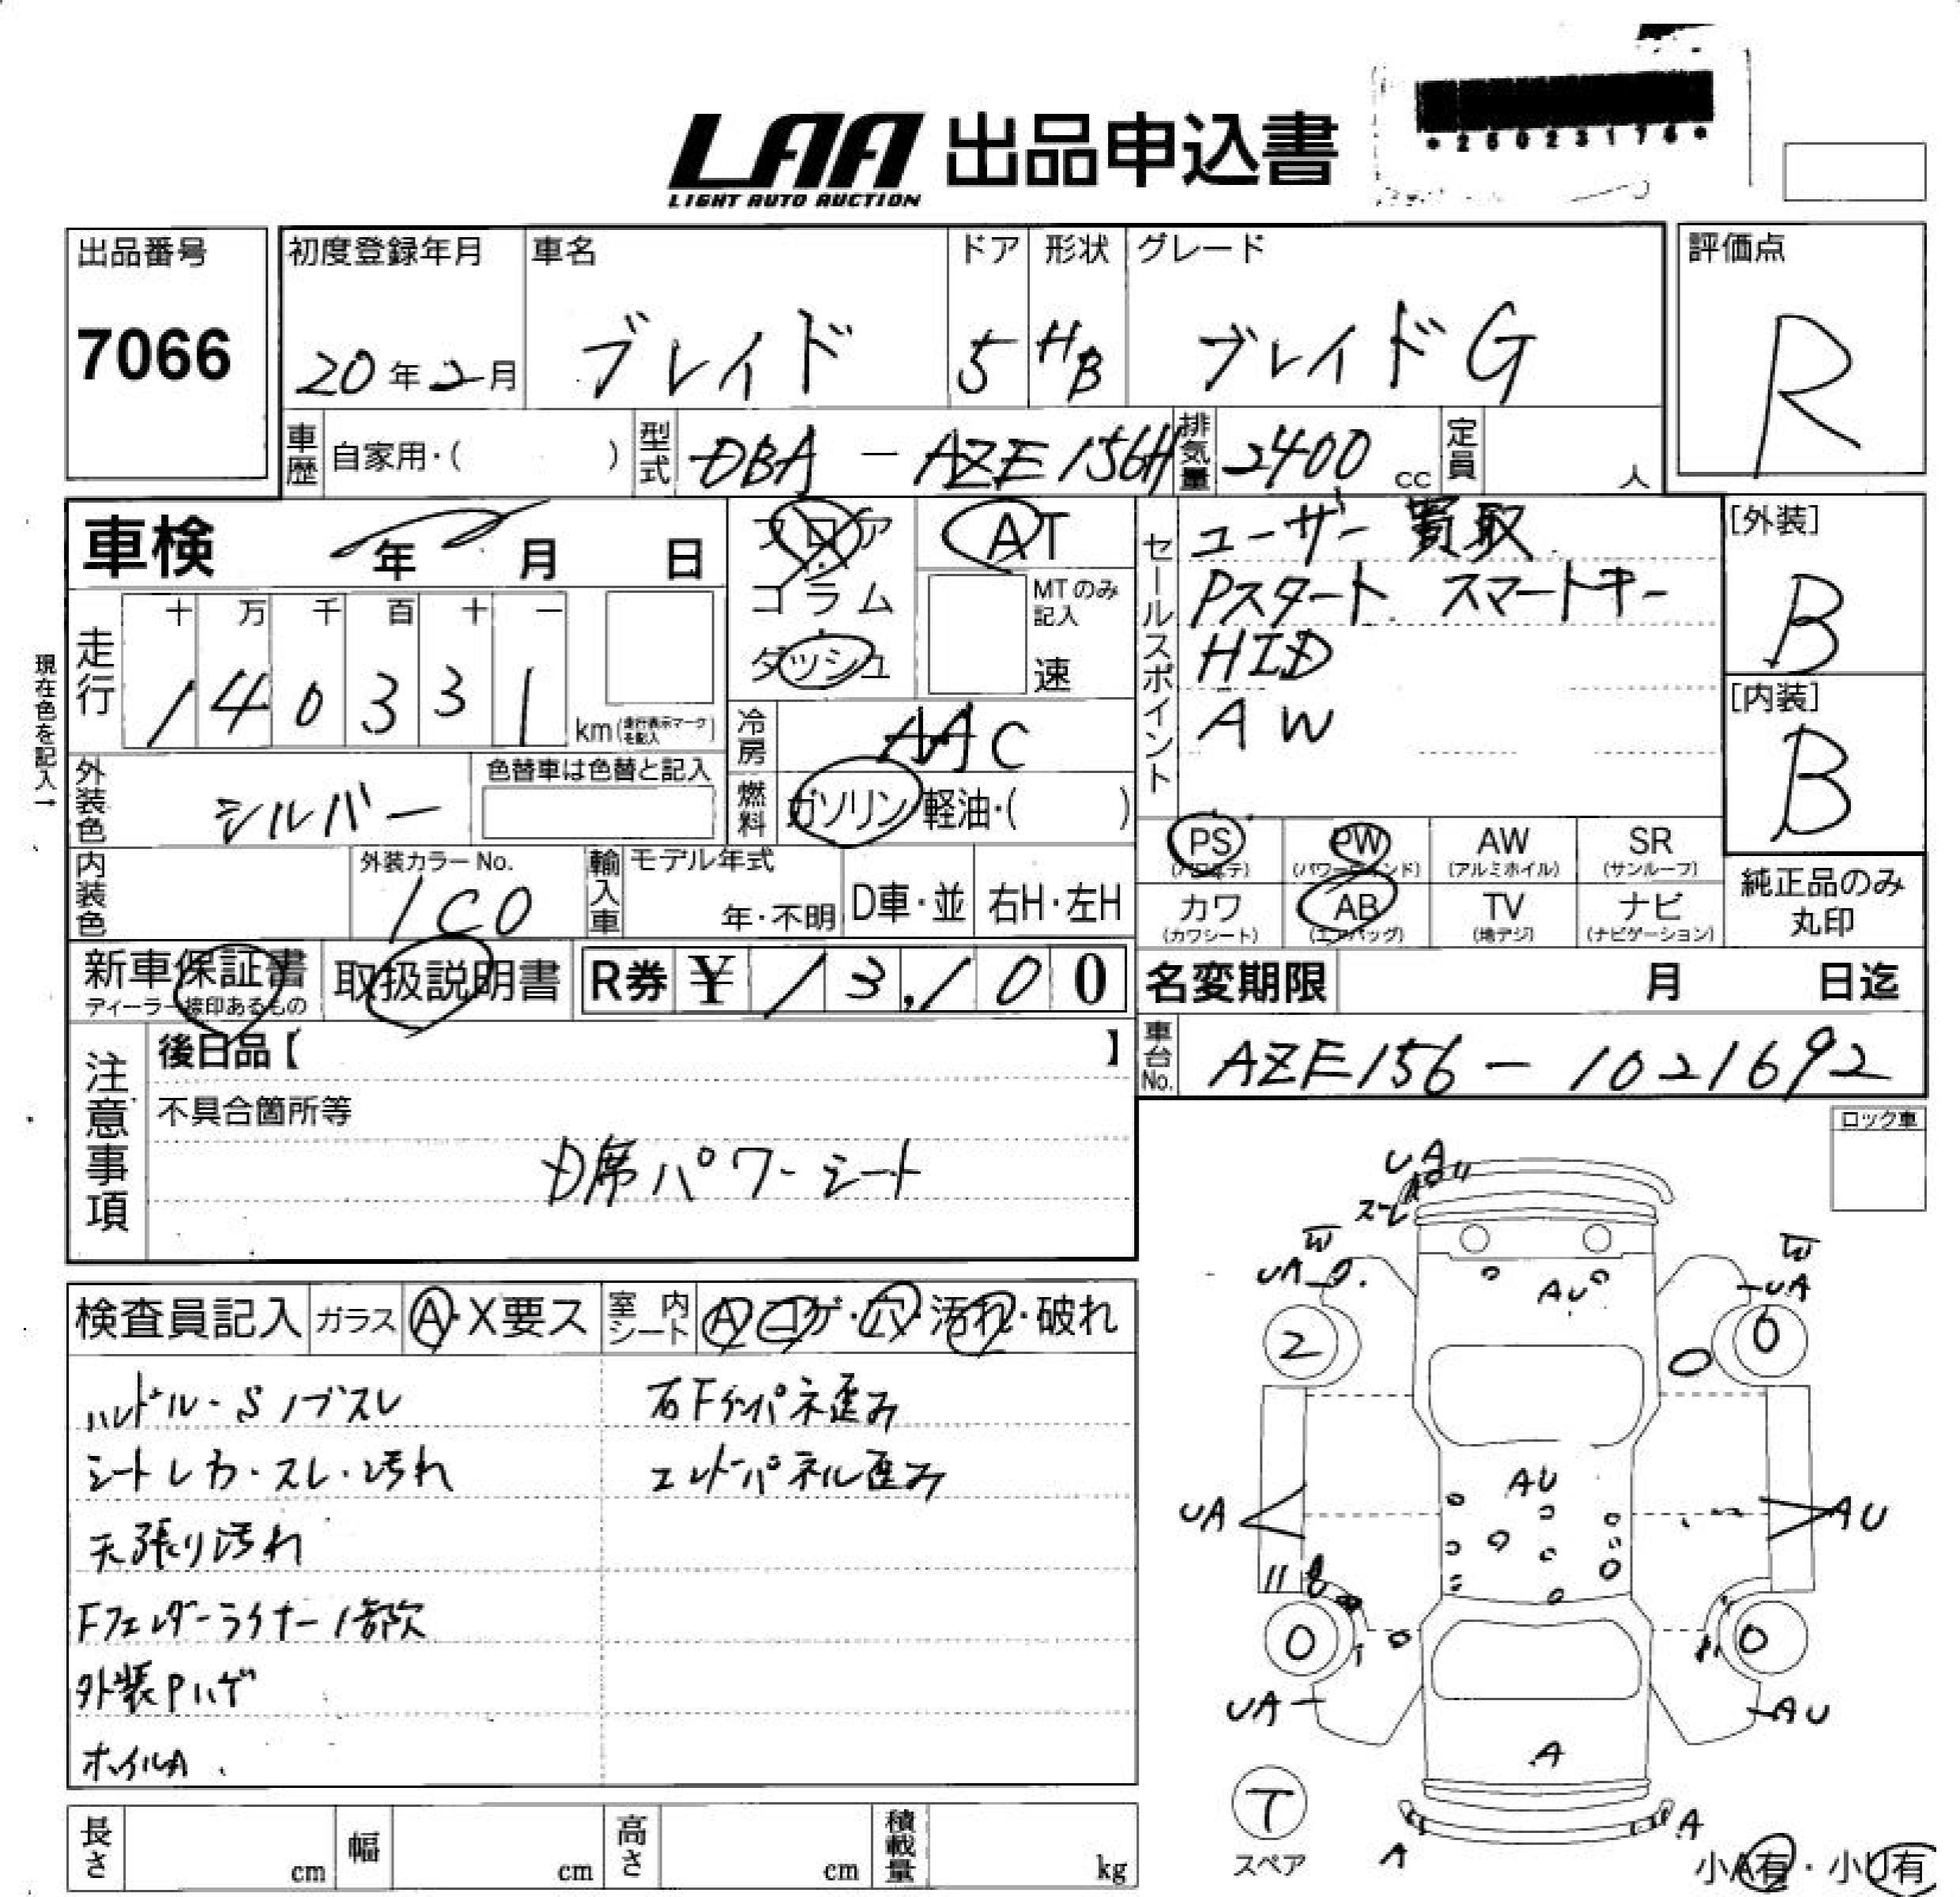 LAA 出品申込書
LIGHT AUTO AUCTION
出品番号
7066
初度登録年月
20年2月
車名
ブレイド
ドア
5
形状
HB
グレード
ブレイドG
評価点
R
車歴
自家用・( )
型式
DBA - AZE156H
排気量
2400 cc
定員
人
車検
年 月 日
フロア
コラム
ダッシュ
AT
MTのみ記入
速
セールスポイント
ユーザー買取
Pスタート スマートキー
HID
AW
[外装]
B
[内装]
B
現在色を記入→
走行
十 万 千 百 十 一
1 4 0 3 3 1
km(走行表示マークを記入)
冷房
AAC
燃料
ガソリン・軽油・( )
外装色
シルバー
色替車は色替と記入
内装色
外装カラーNo.
1C0
輸入車
モデル年式
年・不明
D車・並
右H・左H
PS
(パワステ)
PW
(パワーウインド)
AW
(アルミホイル)
SR
(サンルーフ)
カワ
(カワシート)
AB
(エアバッグ)
TV
(地デジ)
ナビ
(ナビゲーション)
純正品のみ
丸印
新車保証書
ディーラー捺印あるもの
取扱説明書
R券 ¥ 13,100
名変期限 月 日迄
車台No.
AZE156-1021692
注意事項
後日品【 】
不具合箇所等
D席パワーシート
ロック車
検査員記入
ガラス
A・X要ス
室内シート
A・コゲ・穴・汚れ・破れ
ハンドル・Sノブスレ
右Fインパネ歪み
シートレカ・スレ・汚れ
エンドパネル歪み
天張り汚れ
Fフェンダーライナー1部欠
外装Pハゲ
ホイルA
UA
スレ
W
UA
W
UA
AU
2
6
AU
UA
AU
0
0
UA
AU
A
T
スペア
A
A
小A有・小U有
長さ
cm
幅
cm
高さ
cm
積載量
kg